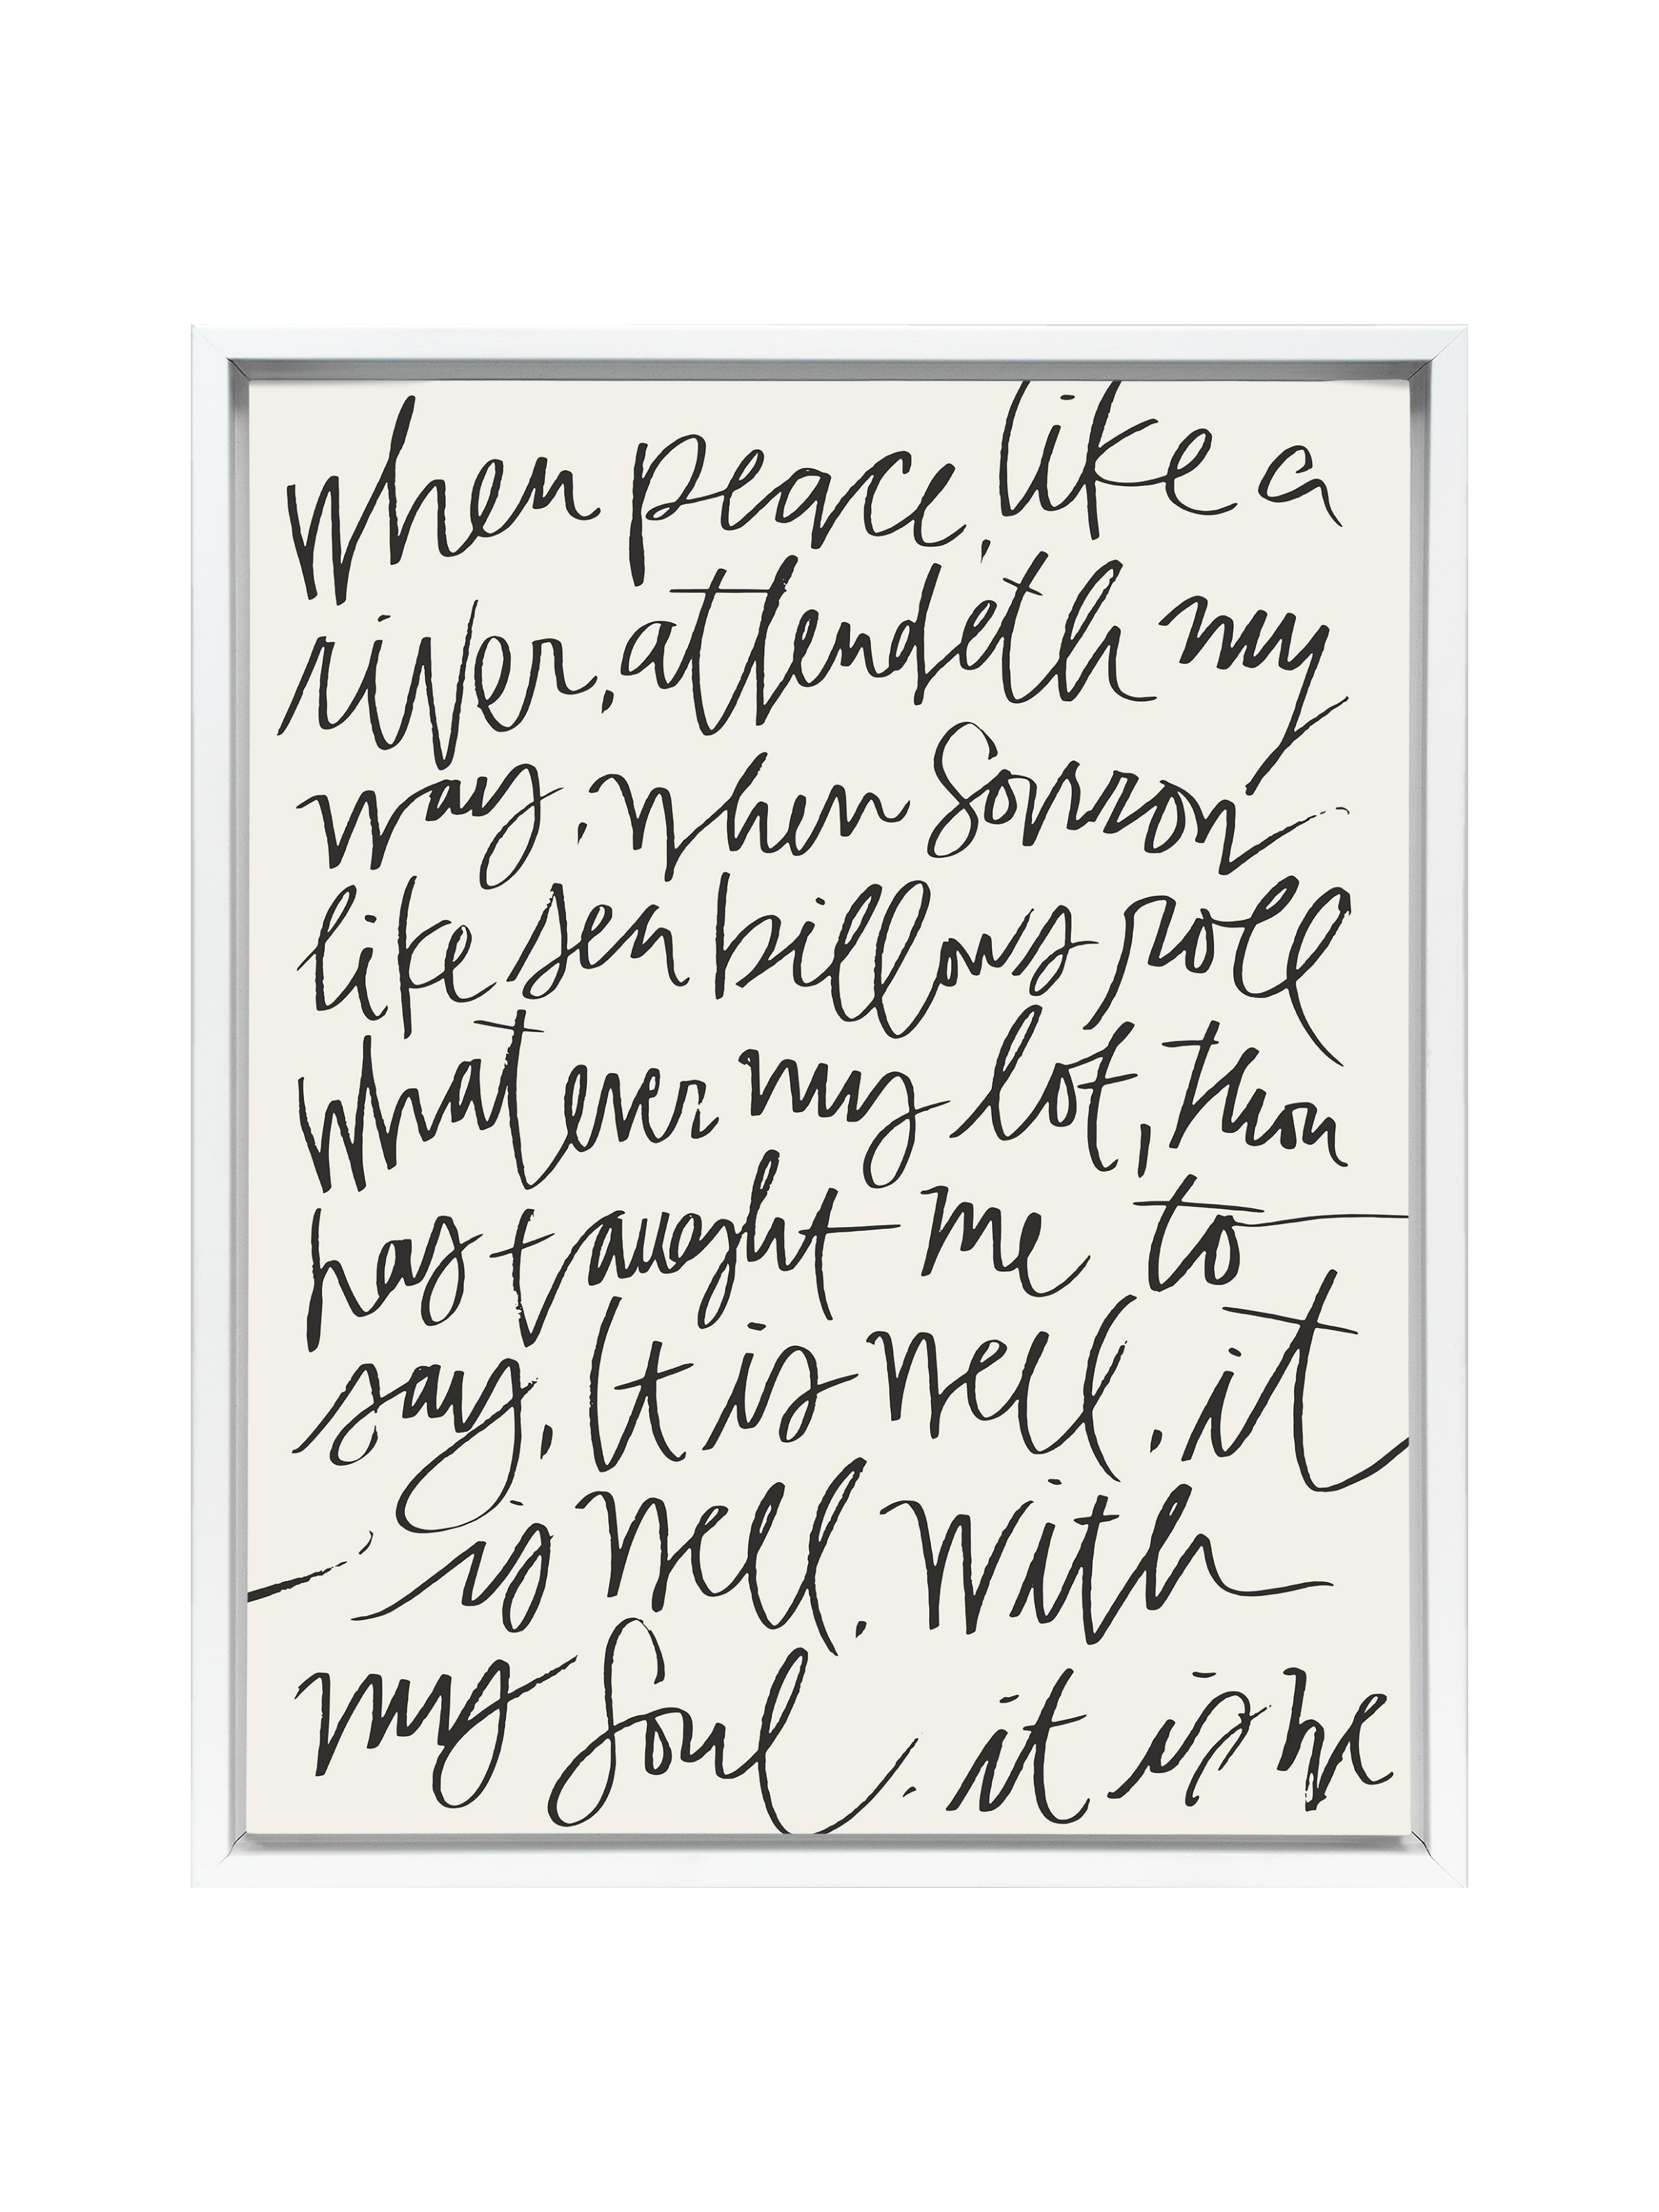 when peace, like a
river, attendeth my
way, when Sorrow
like sea billows roll
whatever my lot, thou
has taught me to
say, It is well, it
is well, with
my Soul. it is we